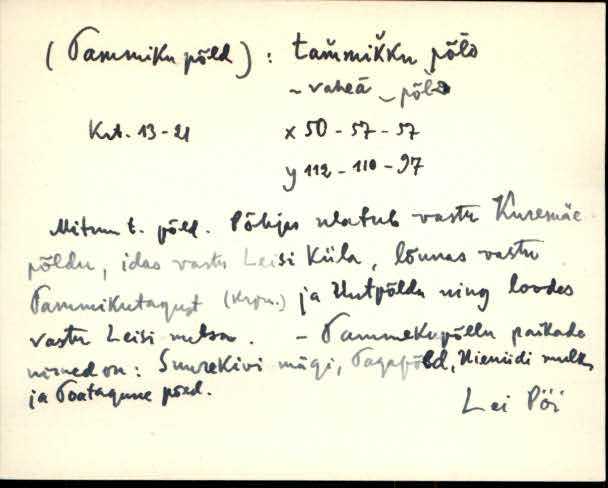 (Tammiku põld) : tam̆mik̆ku põlᴅ
~ vaheä ~ põlᴅ
Krt. 13-21 x 50 - 57 - 57
y 112 - 110 - 97
Mitme t. põld. Põhjas ulatub vastu Kuremäe
põldu, idas vastu Leisi küla, lõunas vastu
Tammikutagust (krjm.) ja Uutpõldu ning loodes
vastu Leisi metsa. - Tammekupõllu paikade
nimed on: Suurekivi mägi, Tagapõld, Hieniidi mulk,
ja Toatagune põld.
Lei Pöi